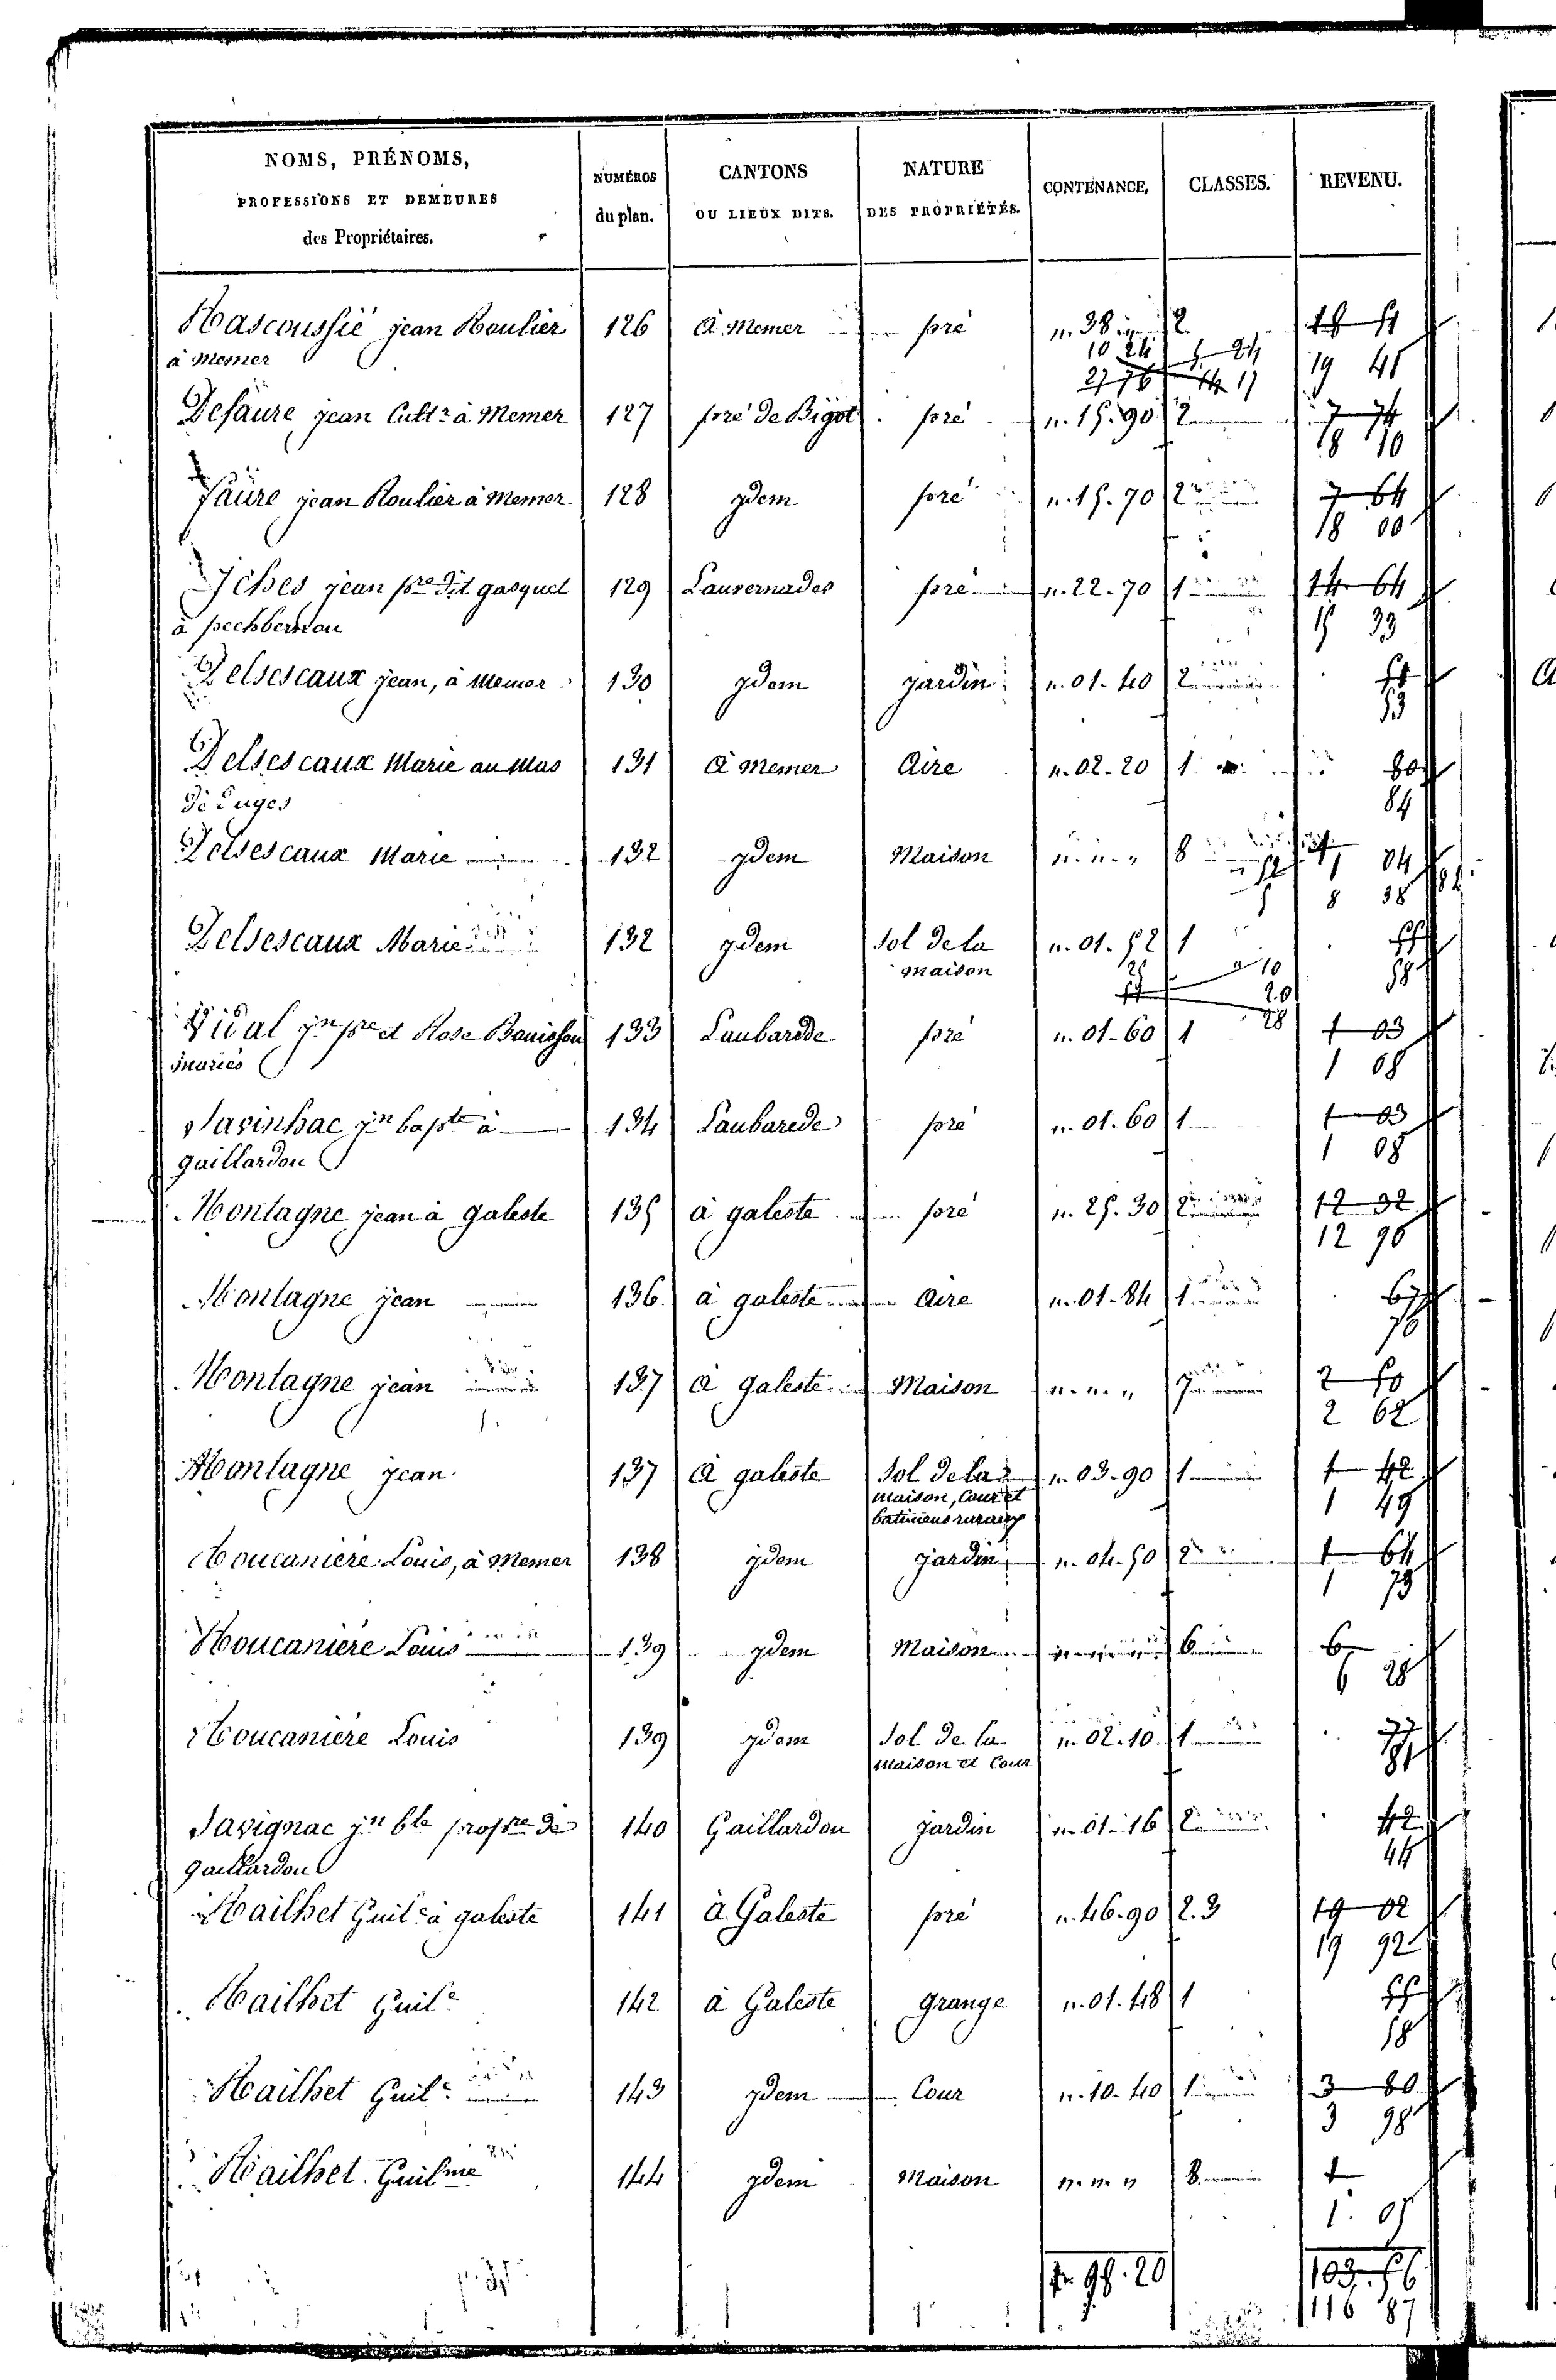 NOMS, PRÉNOMS, PROFESSIONS ET DEMEURES des Propriétaires. NUMÉROS du plan. CANTONS OU LIEUX DITS. NATURE DES PROPRIÉTÉS. CONTENANCE. CLASSES. REVENU.
jean Roulier 126 à Memer pré 38 2
à Memer 10 24 19 45
27 76
Defaure jean Cultr à Memer 127 pré de Bigot pré 15.90 2 7 74
8 10
Faure jean Roulier à Memer 128 ydem pré 15.70 2 7 64
8 00
Iches jean pre dit gasquet 129 Lauvernades pré 22.70 1 14 64
à pechbernou 15 33
Delsescaux jean, à Memer 130 ydem jardin 01.40 2 51
53
Delsescaux Marie au Mas 131 à Memer Aire 02.20 1 80
84
Delsescaux Marie 132 ydem Maison 8
Delsescaux Marie 132 ydem Sol de la 01.52 1 55
maison 58
Vidal jn pre et Rose Bouisson 133 Laubarede pré 01.60 1 1 03
mariés 1 08
jn bapte à 134 Laubarede pré 01.60 1 1 03
gaillardou 1 08
Montagne jean à galeste 135 à galeste pré 25.30 2 12 32
12 96
Montagne jean 136 à galeste Aire 01.84 1 67
70
Montagne jean 137 à galeste Maison 7 2 50
2 62
Montagne jean 137 à galeste Sol de la 03.90 1 1 42
maison, Cour et 1 49
batimens ruraux
Louis, à Memer 138 ydem jardin 04.50 2 1 64
1 73
Louis 139 ydem Maison 6 6
6 28
Louis 139 ydem Sol de la 02.10 1 77
maison et Cour 81
Savignac jn bte propre de 140 Gaillardou jardin 01.16 2 42
gaillardou 44
Guile à galeste 141 à Galeste pré 46.90 2.3 19 02
19 92
Guile 142 à Galeste grange 01.48 1 55
58
Guile 143 ydem Cour 10.40 1 3 80
3 98
Guilme 144 ydem Maison 8 1
1 05
98.20 103.56
116 87